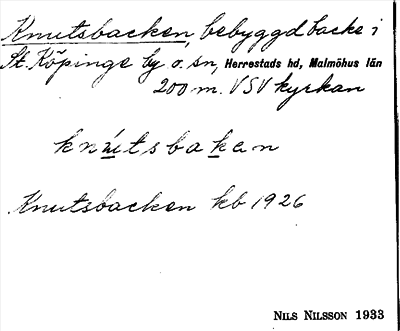 Knutsbacken, bebyggd backe i
St. Köpinge by o. sn, Herrestads hd, Malmöhus län
200 m. VSV kyrkan
knútsbakan
Knutsbacken kb 1926
NILS NILSSON 1933